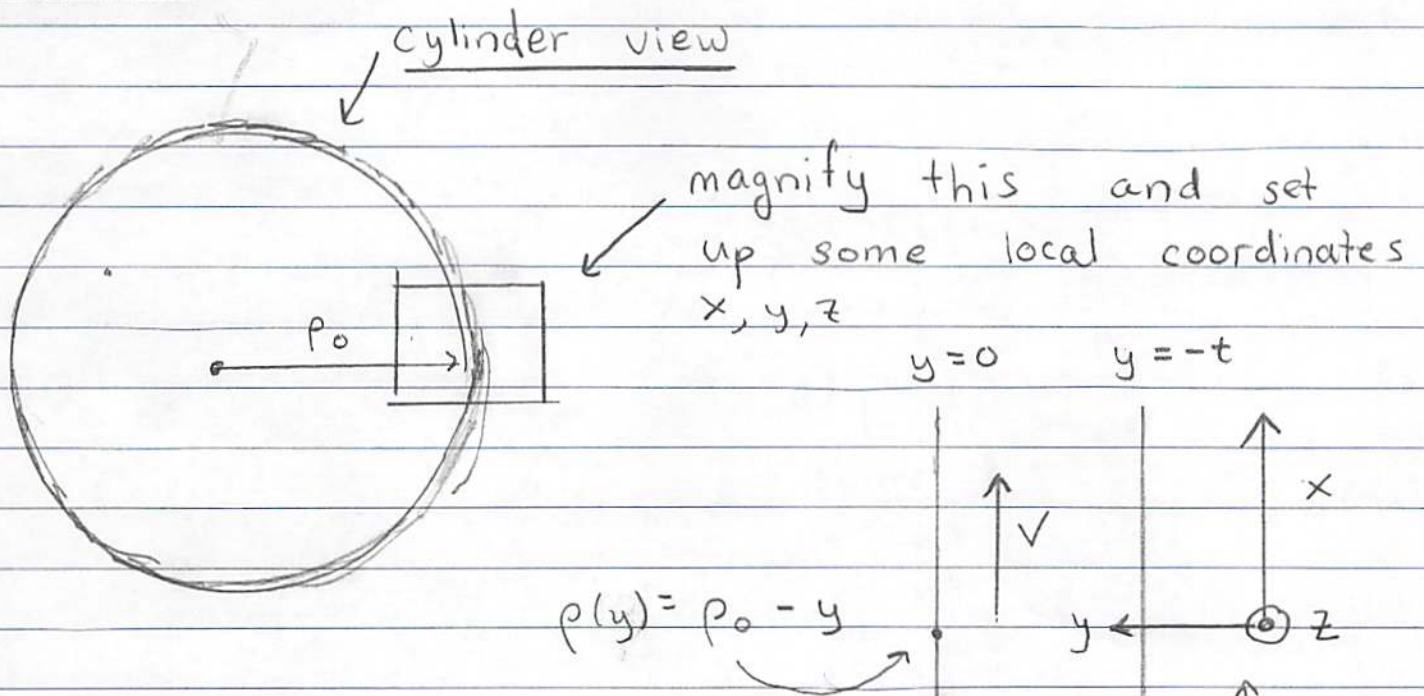 cylinder view
magnify this and set
up some local coordinates
x, y, z
ρ₀
y = 0
y = -t
x
V
ρ(y) = ρ₀ - y
y
z